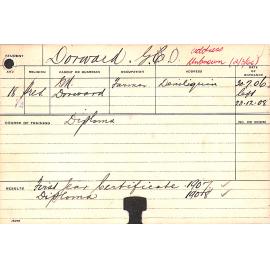 STUDENT Dorward G.E.D. address
Unknown (2/3/66)
AGE RELIGION PARENT OR GUARDIAN OCCUPATION ADDRESS DATE OF ENTRANCE
18 Pres Farmer Deniliquin 20.2.06
Dorward Left
23-12-08
COURSE OF TRAINING Diploma
RESULTS First Year Certificate 1907 ✓
Diploma 1908 ✓